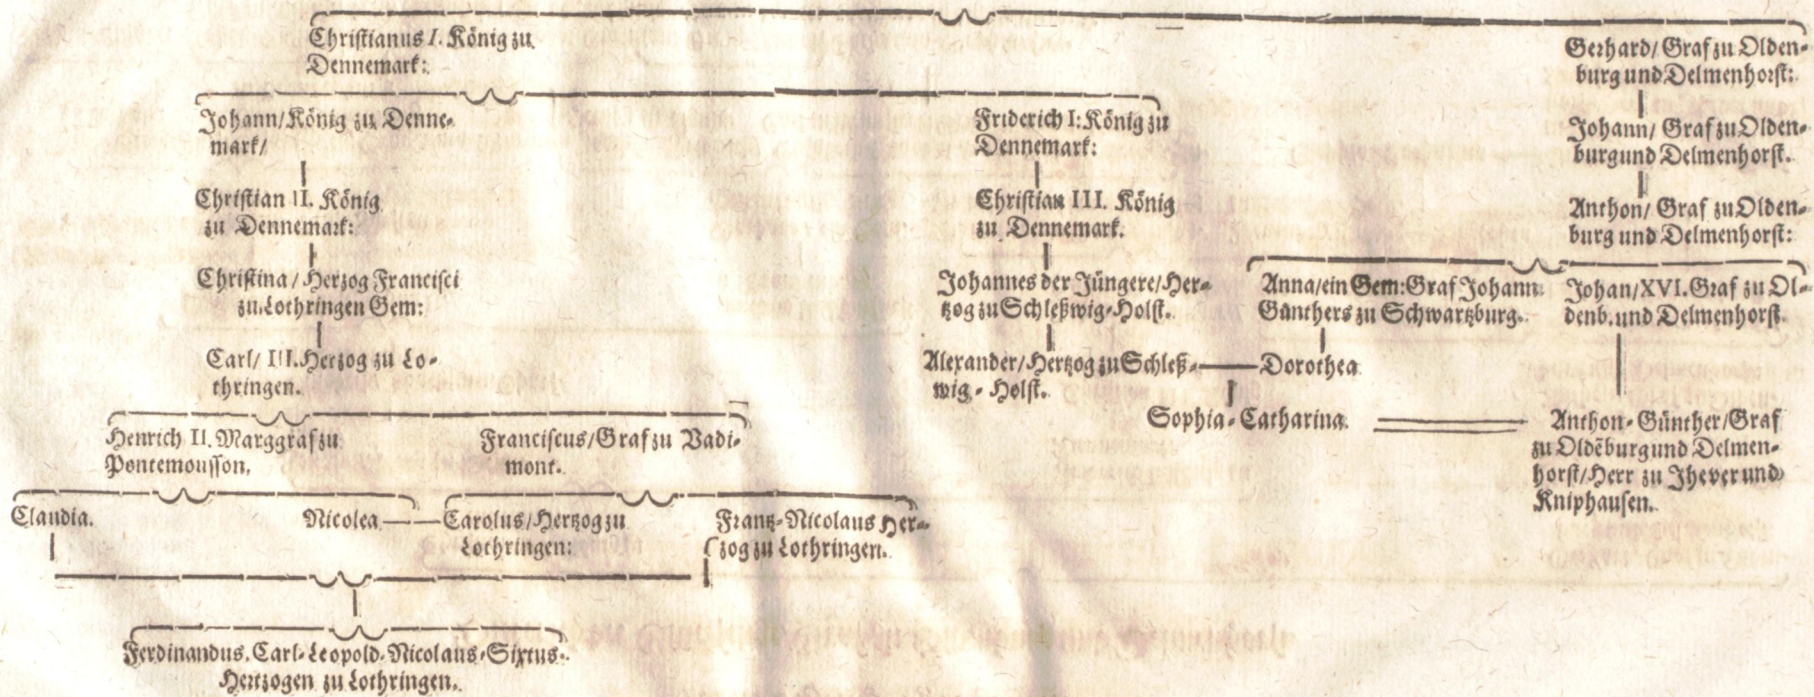 Christianus I. König zu
Dennemark:
Gerhard/ Graf zu Olden-
burg und Delmenhorst:
Johann/König zu Denne-
mark/
Friderich I: König zu
Dennemark:
Johann/ Graf zu Olden-
burg und Delmenhorst.
Christian II. König
zu Dennemark:
Christian III. König
zu Dennemark.
Anthon/ Graf zu Olden-
burg und Delmenhorst:
Christina/ Herzog Francisci
zu Lothringen Gem:
Johannes der Jüngere/Her-
tzog zu Schleßwig-Holst.
Anna/ein Gem: Graf Johann
Günthers zu Schwartzburg.
Johan/XVI. Graf zu Ol-
denb. und Delmenhorst.
Carl/ III. Herzog zu Lo-
thringen.
Alexander/Hertzog zu Schleß-
wig-Holst.
Dorothea
Sophia-Catharina.
Anthon-Günther/Graf
zu Oldēburg und Delmen-
horst/Herr zu Jhever und
Kniphausen.
Henrich II. Marggraf zu
Pontemousson,
Franciscus/Graf zu Vadi-
mont.
Claudia.
Nicolea
Carolus/Hertzog zu
Lothringen:
Frantz-Nicolaus Her-
zog zu Lothringen.
Ferdinandus. Carl-Leopold-Nicolaus-Sixtus.
Hertzogen zu Lothringen.